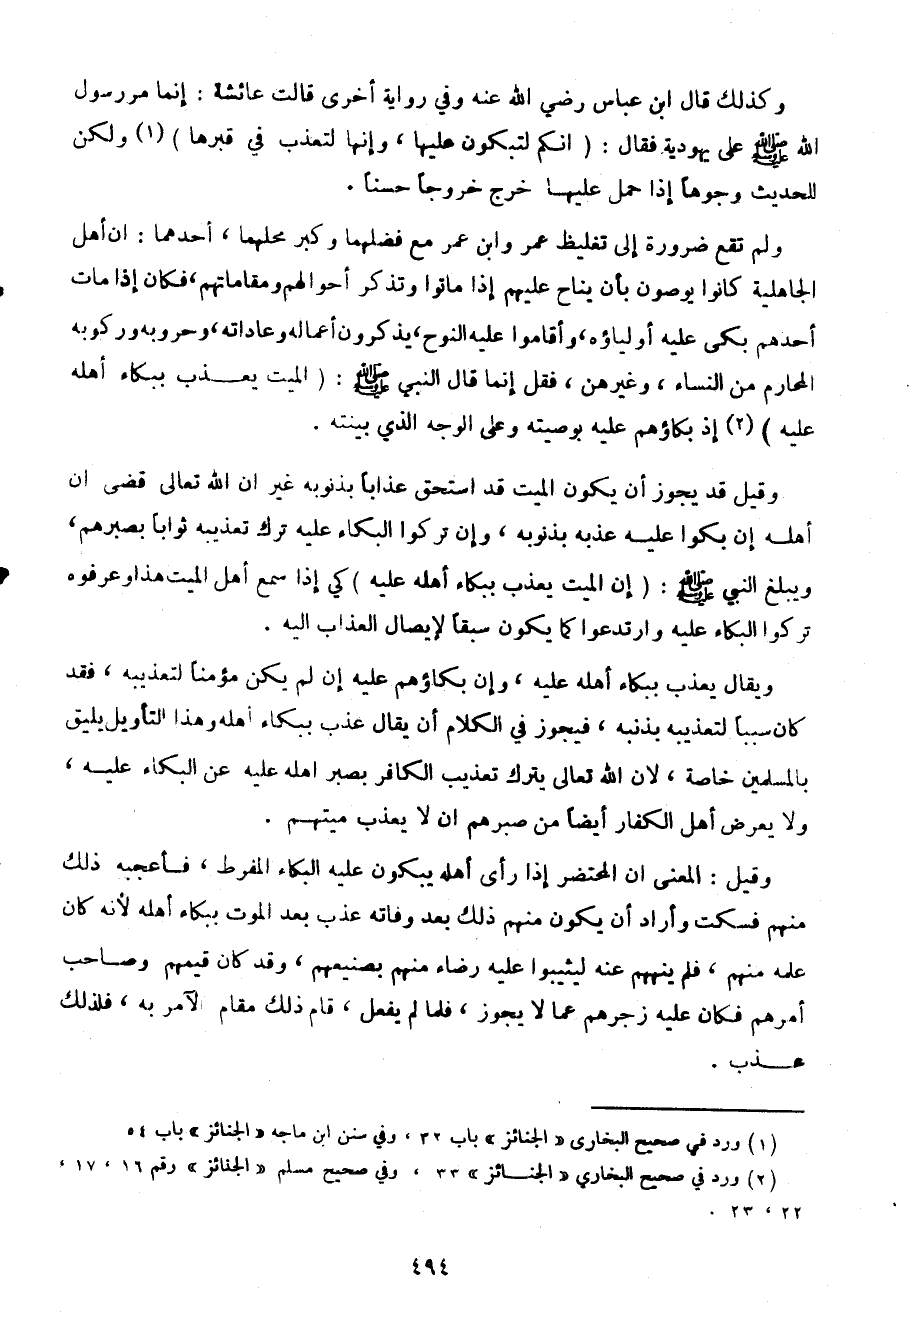 وكذلك قال ابن عباس رضي الله عنه وفي رواية أخرى قالت عائشة : إنما مر رسول
الله ﷺ على يهودية فقال : ( انكم لتبكون عليها ، وإنها لتعذب في قبرها ) (١) ولكن
للحديث وجوهاً إذا حمل عليها خرج خروجاً حسناً .
ولم تقع ضرورة إلى تغليظ عمر وابن عمر مع فضلهما وكبر محلهما ، أحدهما : ان أهل
الجاهلية كانوا يوصون بأن يناح عليهم إذا ماتوا وتذكر أحوالهم ومقاماتهم ، فكان إذا مات
أحدهم بكى عليه أولياؤه ، وأقاموا عليه النوح ، يذكرون أعماله وعاداته ، وحروبه وركوبه
المحارم من النساء ، وغيرهن ، فقل إنما قال النبي ﷺ : ( الميت يعـذب ببكاء أهله
عليه ) (٢) إذ بكاؤهم عليه بوصيته وعلى الوجه الذي بينته .
وقيل قد يجوز أن يكون الميت قد استحق عذاباً بذنوبه غير ان الله تعالى قضى ان
أهله إن بكوا عليه عذبه بذنوبه ، وإن تركوا البكاء عليه ترك تعذيبه ثواباً بصبرهم ،
ويبلغ النبي ﷺ : ( إن الميت يعذب ببكاء أهله عليه ) كي إذا سمع أهل الميت هذا وعرفوه
تركوا البكاء عليه وارتدعوا كما يكون سبقاً لإيصال العذاب اليه .
ويقال يعذب ببكاء أهله عليه ، وإن بكاؤهم عليه إن لم يكن مؤمناً لتعذيبه ، فقد
كان سبباً لتعذيبه بذنبه ، فيجوز في الكلام أن يقال عذب ببكاء أهله وهذا التأويل يليق
بالمسلمين خاصة ، لان الله تعالى يترك تعذيب الكافر بصبر اهله عليه عن البكاء عليه ،
ولا يعرض أهل الكفار أيضاً من صبرهم ان لا يعذب ميتهم .
وقيل : المعنى ان المحتضر إذا رأى أهله يبكون عليه البكاء المفرط ، فأعجبه ذلك
منهم فسكت وأراد أن يكون منهم ذلك بعد وفاته عذب بعد الموت ببكاء أهله لأنه كان
علمه منهم ، فلم ينههم عنه ليثيبوا عليه رضاء منهم بصنيعهم ، وقد كان قيمهم وصاحب
أمرهم فكان عليه زجرهم عما لا يجوز ، فلما لم يفعل ، قام ذلك مقام الآمر به ، فلذلك
عـذب .
(١) ورد في صحيح البخارى « الجنائز » باب ٣٢ ، وفي سنن ابن ماجه « الجنائز » باب ٥٤
(٢) ورد في صحيح البخاري « الجنـائز » ٣٣ ، وفي صحيح مسلم « الجنائز » رقم ١٦ ، ١٧ ،
٢٢ ، ٢٣ .
٤٩٤